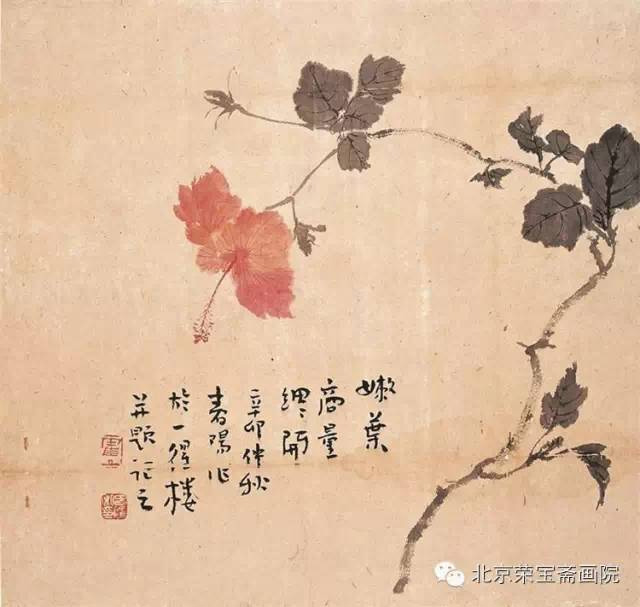 嫩葉
商量
細細開
辛卯仲秋
春陽作
於一得樓
并題記之
北京荣宝斋画院